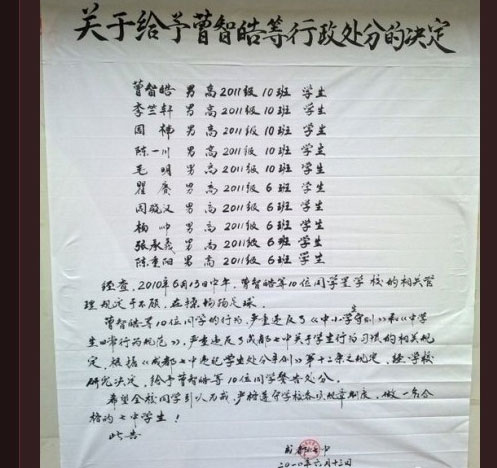 关于给予曹智皓等行政处分的决定
曹智皓 男 高2011级 10班 学生
李竺轩 男 高2011级 10班 学生
周 男 高2011级 10班 学生
陈一川 男 高2011级 10班 学生
毛明 男 高2011级 10班 学生
瞿 男 高2011级 6班 学生
周晓汉 男 高2011级 6班 学生
杨帅 男 高2011级 6班 学生
张承 男 高2011级 6班 学生
陈重阳 男 高2011级 6班 学生
经查,2010年6月13日中午,曹智皓等10位同学置学校的相关管
理规定于不顾,在操场踢足球。
曹智皓等10位同学的行为,严重违反了《中小学生守则》和《中学
生日常行为规范》,严重违反了成都七中关于学生行为习惯的相关规
定,根据《成都七中违纪学生处分条例》第十二条之规定,经学校
研究决定,给予曹智皓等10位同学警告处分。
希望全校同学引以为戒,严格遵守学校各项规章制度,做一名合
格的七中学生!
此告
成都七中
二〇一〇年六月十三日